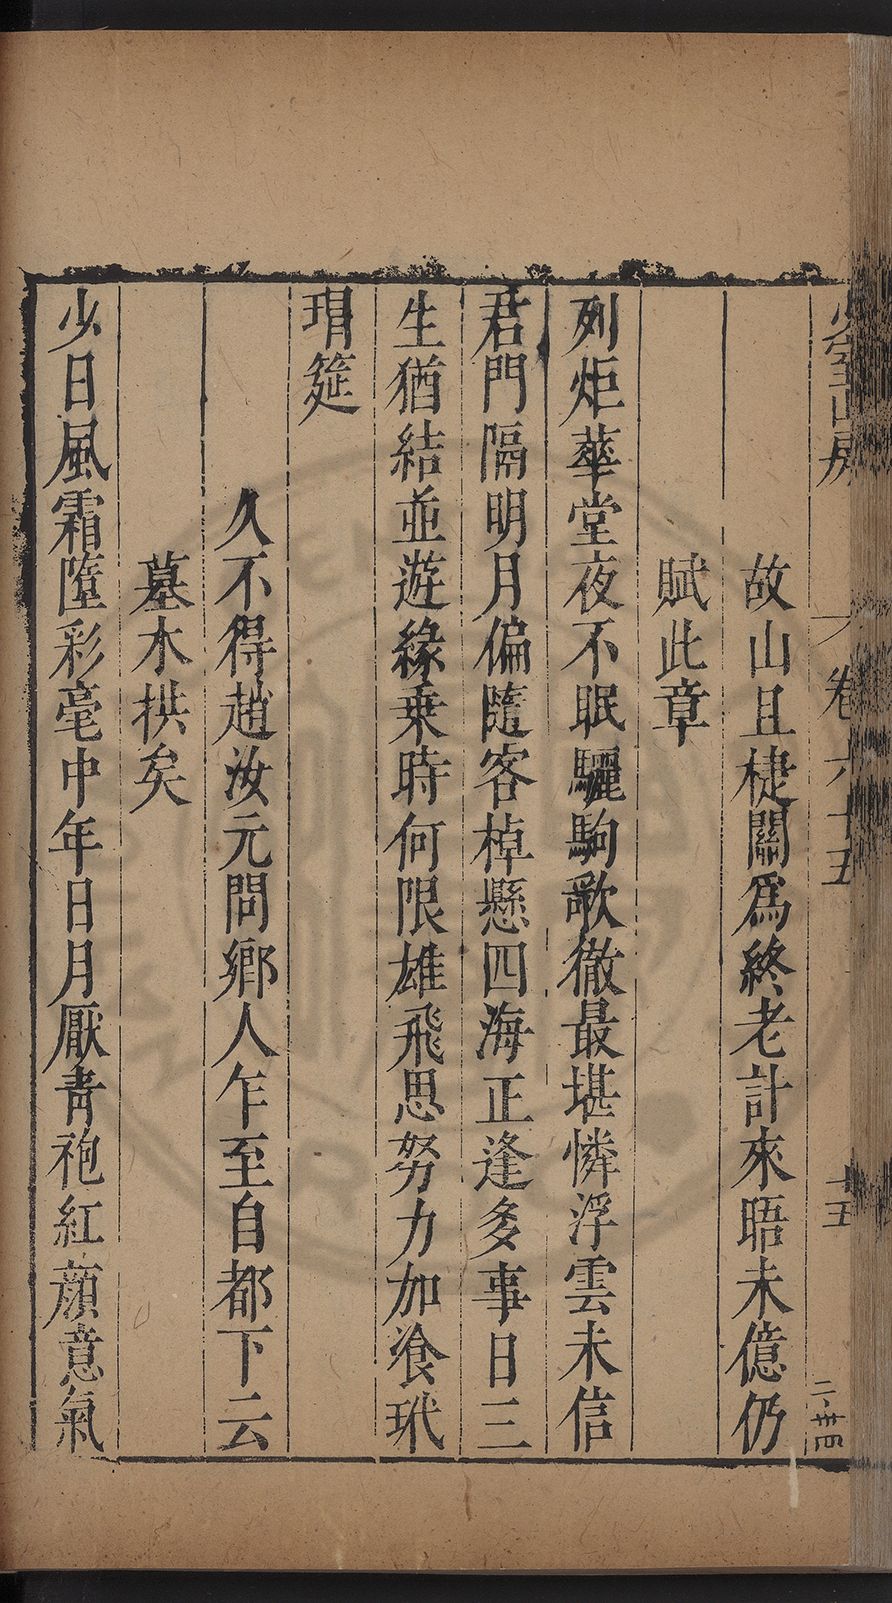 少室山房
卷六十五
十五
故山且揵關爲終老計來晤未億仍
賦此章
列炬華堂夜不眠驪駒歌徹最堪憐浮雲未信
君門隔明月偏隨客棹懸四海正逢多事日三
生猶結並遊緣乗時何限雄飛思努力加飡玳
瑁筵
久不得趙汝元問鄉人乍至自都下云
墓木拱矣
少日風霜墮彩毫中年日月厭青袍紅顔意氣